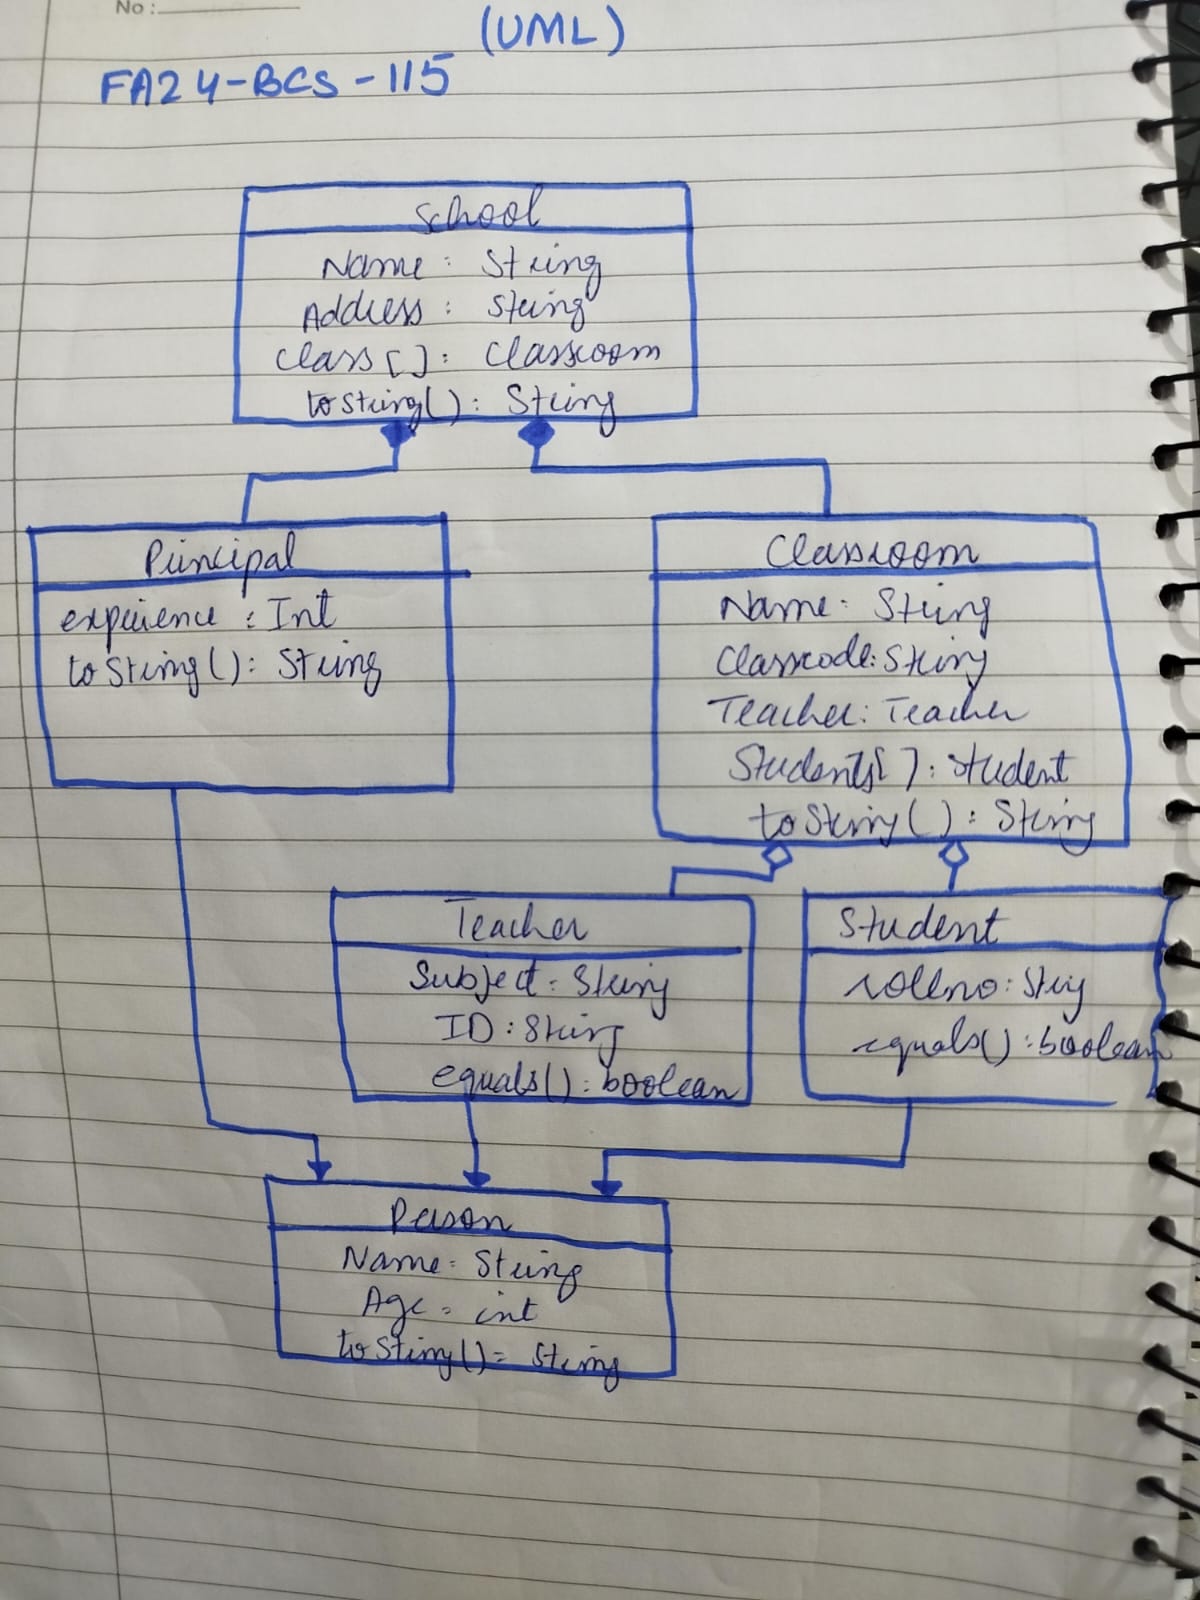 No:
(UML)
FA24-BCS-115
School
Name: String
Address: String
class[]: Classroom
toString(): String
Principal
experience: Int
toString(): String
Classroom
Name: String
Classcode: String
Teacher: Teacher
Students[]: student
toString(): String
Teacher
Subject: String
ID: String
equals(): boolean
Student
rollno: String
equals(): boolean
Person
Name: String
Age: int
toString(): String